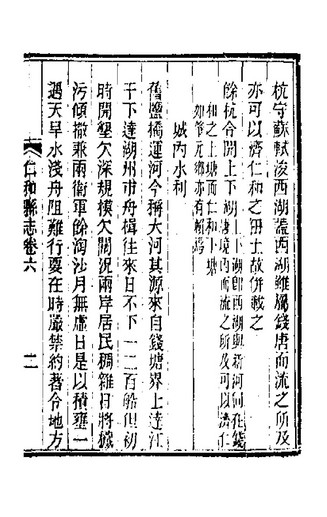 杭守蘇軾浚西湖蓋西湖雖屬錢唐而流之所及
亦可以濟仁和之田土故併載之
餘杭令開上下湖上下湖即西湖與新河同在錢
唐境內而流之所及可以濟仁
和之上塘而仁和下塘
如管元鄉亦有賴焉
城內水利
舊鹽橋運河今稱大河其源來自錢塘界上達江
干下達湖州市舟楫往來日不下一二百艘但初
時開墾欠深規模欠濶況兩岸居民稠雜日將穢
污傾撒兼兩衛軍餘淘沙月無虛日是以積壅一
遇天旱水淺舟阻難行要在時嚴禁約著令地方
仁和縣志卷六
二